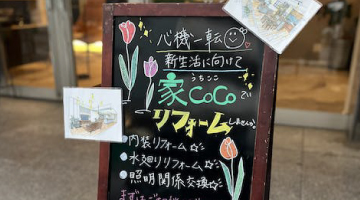 心機一転
新生活に向けて
うちここ
家CoCoで
リフォームしませんか?
•内装リフォーム
•水廻りリフォーム
•照明関係交換
まずは